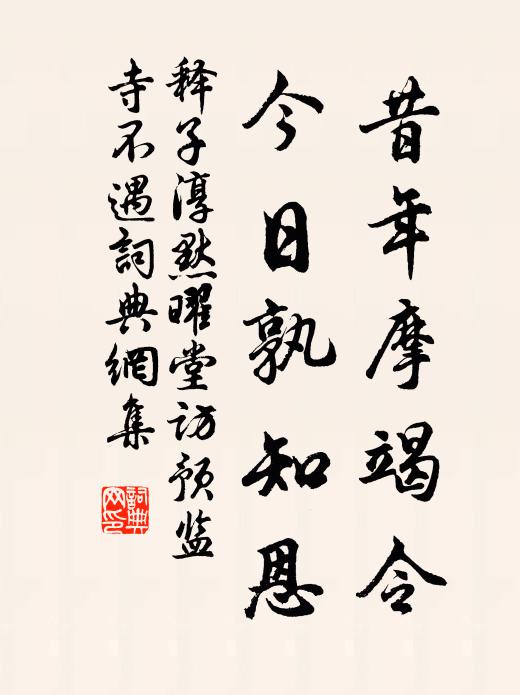 昔年摩竭令
今日孰知恩
释子淳默曜堂访预监
寺不遇詞典網集
詞典
网印